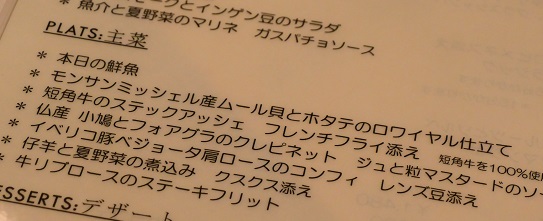 とインゲン豆のサラダ
* 魚介と夏野菜のマリネ　ガスパチョソース
PLATS:主菜
* 本日の鮮魚
* モンサンミッシェル産ムール貝とホタテのロワイヤル仕立て
* 短角牛のステックアッシェ　フレンチフライ添え　短角牛を100%使用
* 仏産 小鳩とフォアグラのクレピネット　ジュと粒マスタードのソー
* イベリコ豚ベジョータ肩ロースのコンフィ　レンズ豆添え
* 仔羊と夏野菜の煮込み　クスクス添え
* 牛リブロースのステーキフリット
DESSERTS:デザート